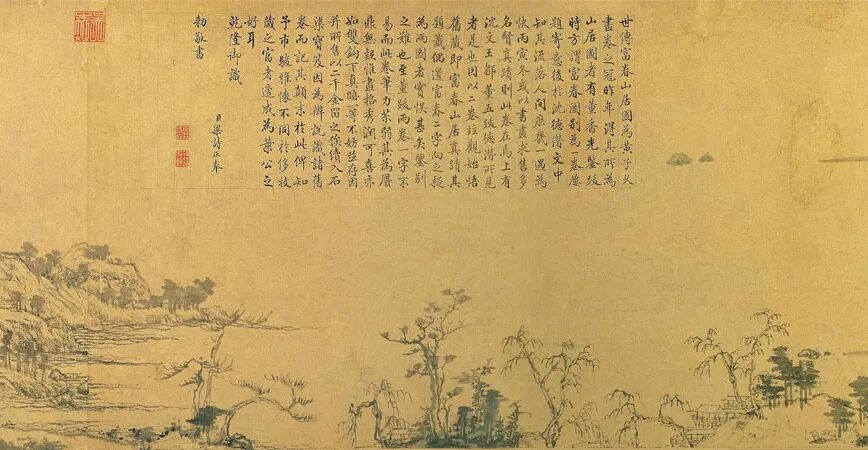 世傳富春山居圖為黃子久
畫卷之冠昨年得其所為
山居圖者有董香光鑒跋
時方謂富春圖別為一卷屢
題寄意後於沈德潛文中
知其流落人間庶幾一遇為
快丙寅冬或以書畫求售多
名賢真蹟則此卷在焉上有
沈文王鄒董五跋德潛所見
者是也因以二卷該觀始悟
舊藏即富春山居真蹟其
題籤偶遺富春二字向之疑
為兩圖者實悞甚矣鑒別
之難也至董跋兩卷一字不
易而此卷筆力苶弱其為贗
鼎無疑惟畫格秀潤可喜亦
如雙鈎下真蹟一等不妨並存因
并所售以二千金留之俟續入石
渠寶笈因為辨說識諸舊
卷而記其顛末於此俾知
予市駿雅懷不同於侈收
藏之富者適成為葉公之
好耳
乾隆御識
臣梁詩正奉
勅敬書